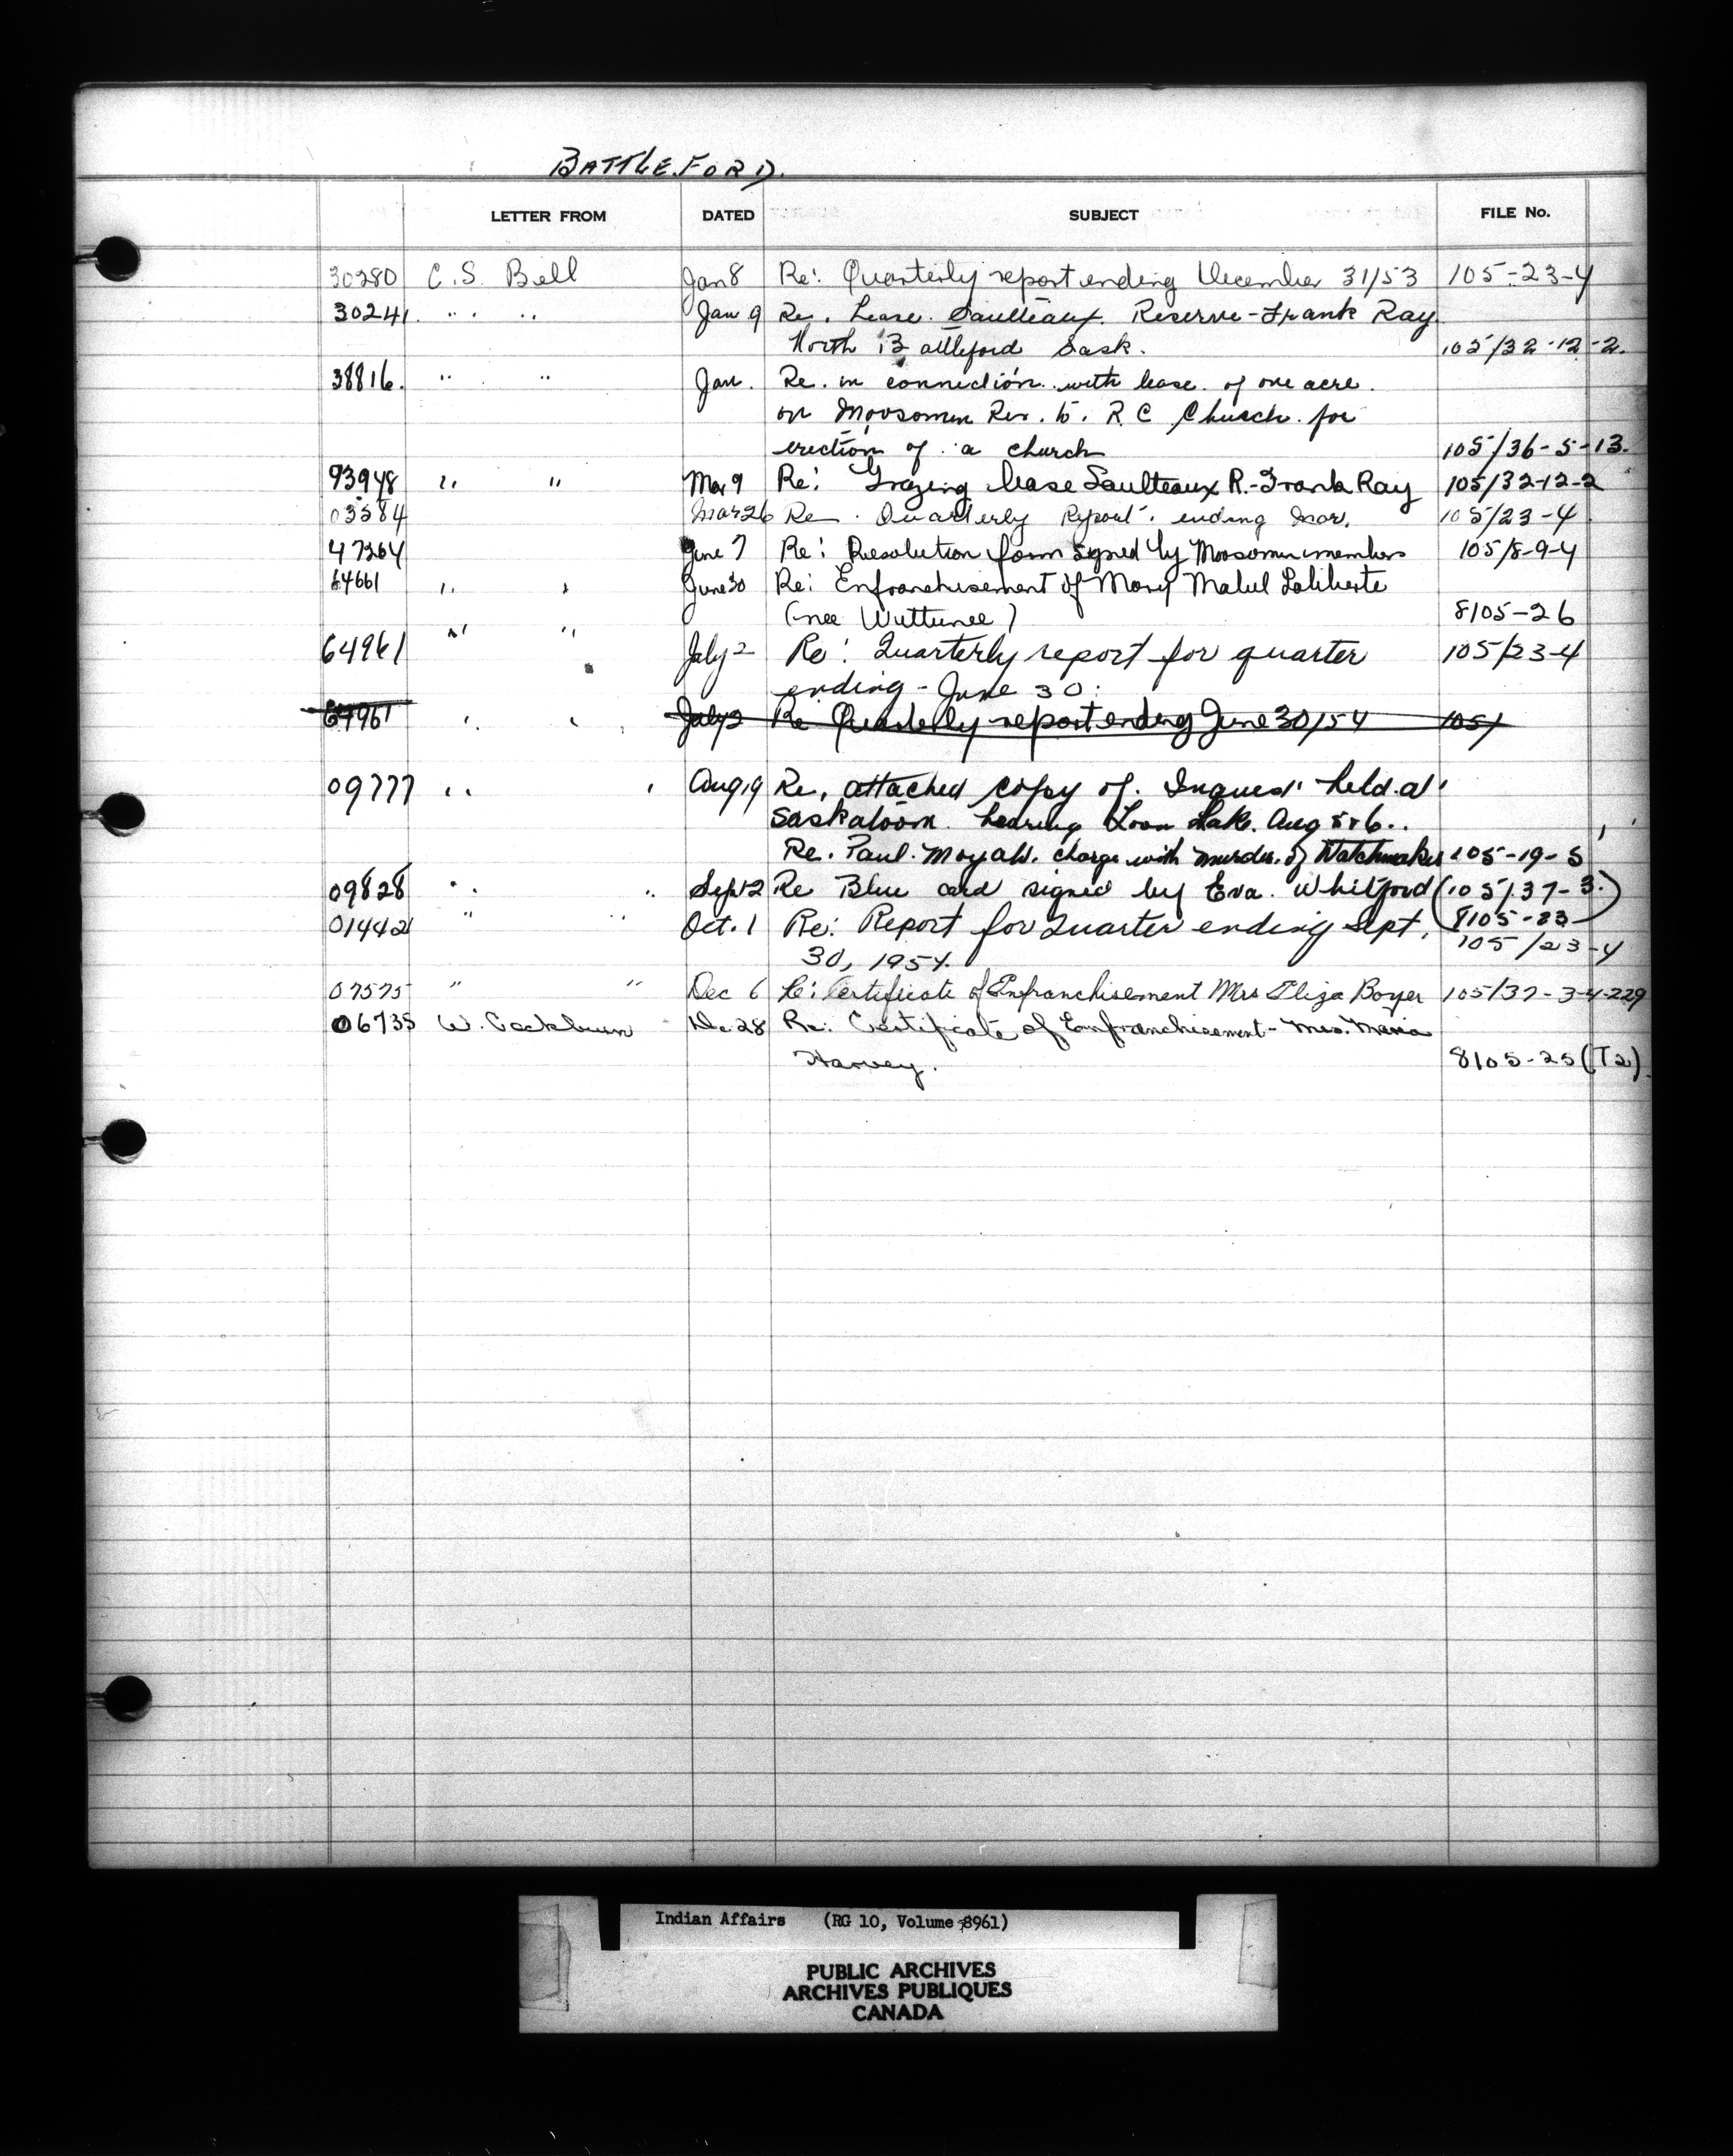 BATTLEFORD.
LETTER FROM DATED SUBJECT FILE No.
30280 C. S. Bell Jan 8 Re: Quarterly report ending December 31/53 105-23-4
30241. " " " Jan 9 Re. Lease. Saulteaux. Reserve - Frank Ray
North Battleford Sask. 105/32-12-2.
38816. " " Jan. Re. in connection with lease of one acre.
on Moosomin Res. to. R C Church. for
erection of a church 105/36-5-13.
93948 " " Mar 9 Re: Grazing lease Saulteaux R. - Frank Ray 105/32-12-2
03584 Mar 26 Re. Quarterly Report. ending Mar. 105/23-4
47364 June 7 Re: Resolution form signed by Moosomin members 105/8-9-4
64661 " " June 30 Re: Enfranchisement of Mary Mabel Laliberte
(nee Wuttunee) 8105-26
64961 " " July 2 Re: Quarterly report for quarter 105/23-4
ending - June 30.
67961 " " July 2 Re Quarterly report ending June 30/54 105/
09777 " " Aug 19 Re, attached copy of. Inquest held at
Saskatoon. hearing Loon Lake. Aug 5 & 6..
Re. Paul. charge with murder. of Watchmaker 105-19-5
09828 " " Sept 2 Re Blue card signed by Eva. Whitford (105/37-3.)
8105-23
01442 " " Oct. 1 Re: Report for Quarter ending Sept. 105/23-4
30, 1954.
07575 " " Dec 6 Re: Certificate of Enfranchisement Mrs Eliza Boyer 105/37-3-4-229
06735 W. Cockburn Dec 28 Re: Certificate of Enfranchisement - Mrs. Maria
Harvey. 8105-25 (T2).
Indian Affairs (RG 10, Volume 8961)
PUBLIC ARCHIVES
ARCHIVES PUBLIQUES
CANADA